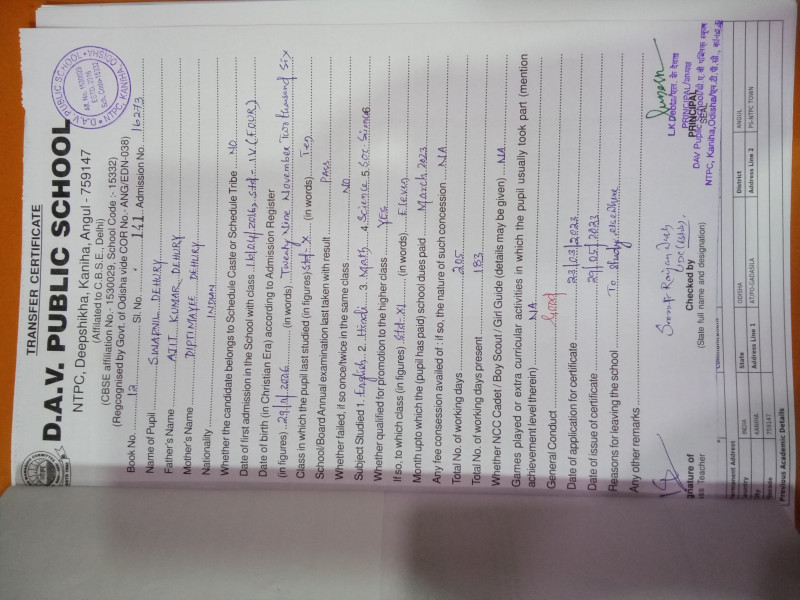 TRANSFER CERTIFICATE
D.A.V. PUBLIC SCHOOL
NTPC, Deepshikha, Kaniha, Angul - 759147
(Affiliated to C.B.S.E., Delhi)
(CBSE affiliation No.- 1530029, School Code :- 15332)
(Regcognised by Govt. of Odisha vide COR No.- ANG/EDN-038)
Book No. 12 Sl. No. 141 Admission No. 16273
Name of Pupil SWAPNIL DEHURY
Father's Name AJIT KUMAR DEHURY
Mother's Name DIPTIMAYEE DEHURY
Nationality INDIAN
Whether the candidate belongs to Schedule Caste or Schedule Tribe NO
Date of first admission in the School with class 16/04/2016, Std-IV (FOUR)
Date of birth (in Christian Era) according to Admission Register
(in figures) 29/11/2006 (in words) Twenty Nine November Two thousand Six
Class in which the pupil last studied (in figures) Std-X (in words) Ten
School/Board Annual examination last taken with result Pass
Whether failed, if so once/twice in the same class NO
Subject Studied 1. English 2. Hindi 3. Math 4. Science 5. Soc. Science 6.
Whether qualified for promotion to the higher class YES
If so, to which class (in figures) Std-XI (in words) Eleven
Month upto which the (pupil has paid) school dues paid March 2023
Any fee consession availed of : if so, the nature of such concession NA
Total No. of working days 205
Total No. of working days present 183
Whether NCC Cadet / Boy Scout / Girl Guide (details may be given) NA
Games played or extra curricular activities in which the pupil usually took part (mention
achievement level therein) NA
General Conduct Good
Date of application for certificate 23/03/2023
Date of issue of certificate 29/05/2023
Reasons for leaving the school To Study elsewhere
Any other remarks
Signature of
Class Teacher
Checked by
(State full name and designation)
PRINCIPAL
SEAL
PRINCIPAL/प्राचार्य
NTPC, Kaniha, Odisha
Permanent Address
Country INDIA State ODISHA District ANGUL
City KANIHA Address Line 1 AT/PO-GADASILA Address Line 2 PS-NTPC TOWN
Pincode 759147
Previous Academic Details